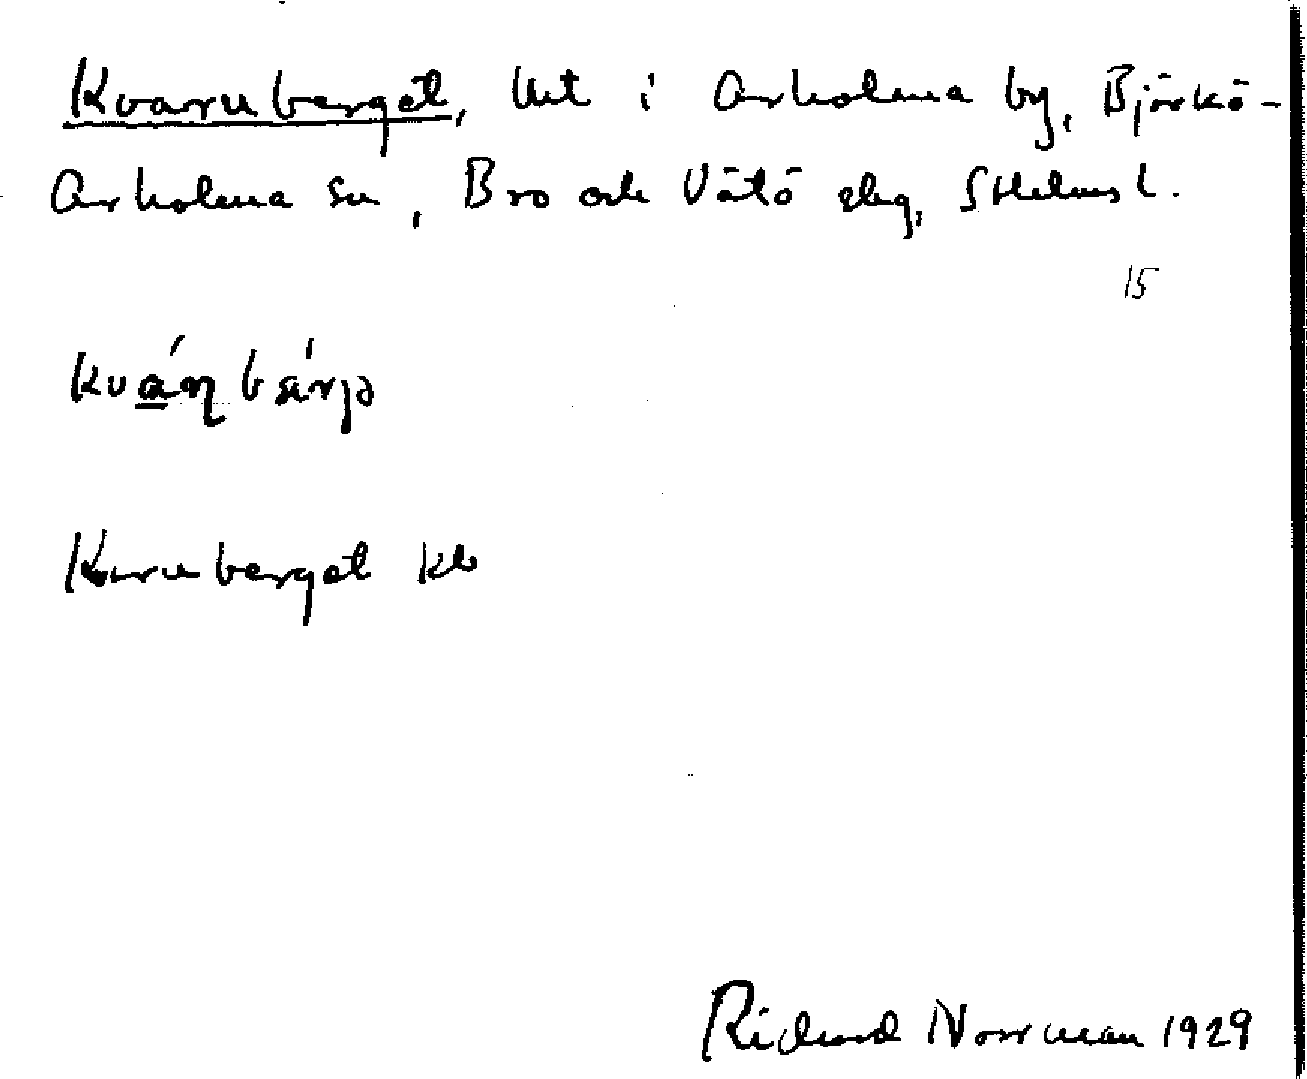 Kvarnberget, lht i Arholma by, Björkö-
Arholma sn, Bro och Vätö slg, Sthlms l.
15
Kvarnberget kb
Richard Norrman 1929